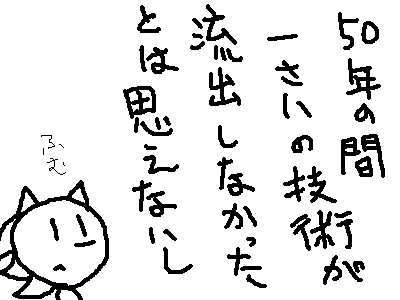 50年の間
一さいの技術が
流出しなかった
とは思えないし
ふむ